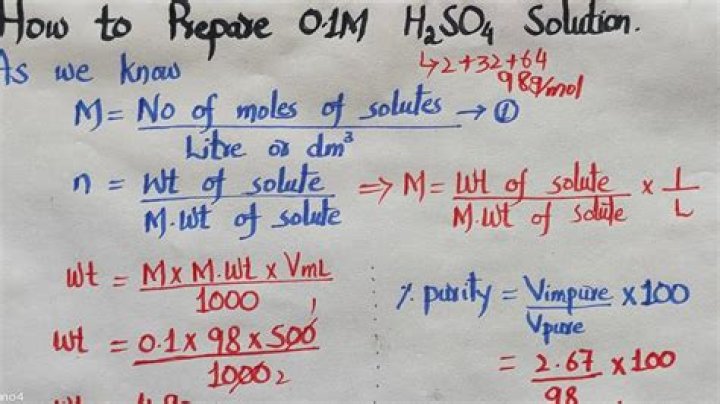 How to Prepare 0.1M H₂SO₄ Solution.
As we know
↳ 2+32+64
98g/mol
M = No of moles of solutes / Litre or dm³ → ①
n = Wt of solute / M.Wt of solute ⇒ M = Wt of solute / M.Wt of solute × 1/L
wt = M × M.Wt × VmL / 1000
wt = 0.1 × 98 × 500 / 1000 2
% purity = Vimpure / Vpure × 100
= 2.67 / 98 × 100
no4